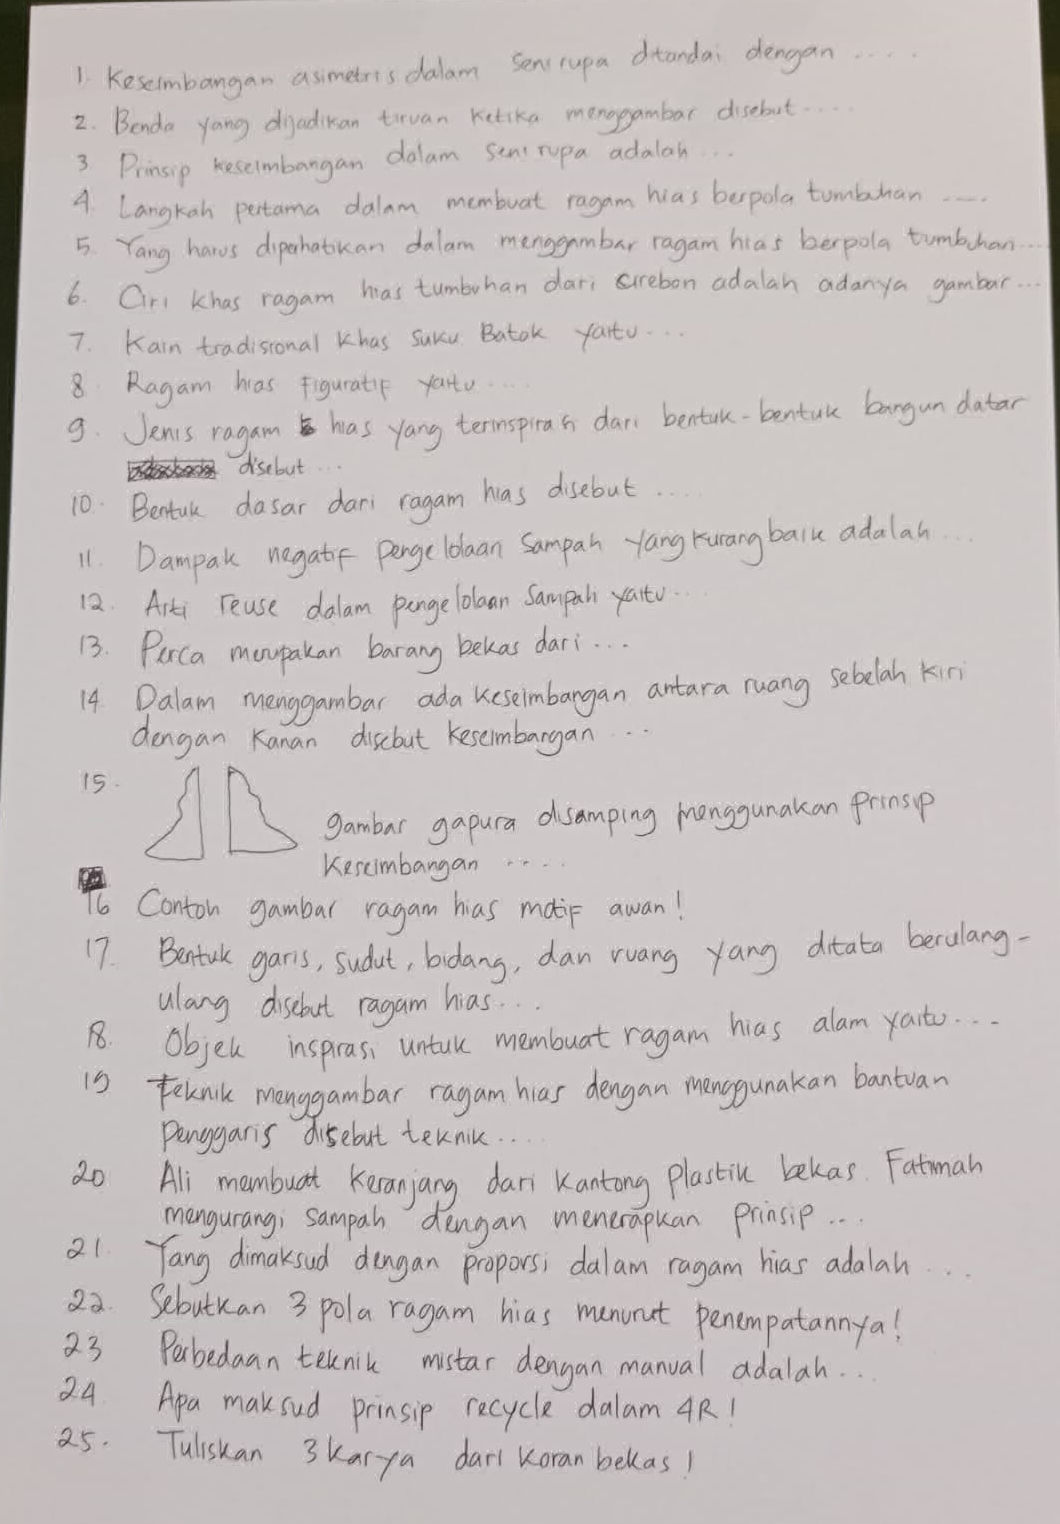 1. Keseimbangan asimetris dalam seni rupa ditandai dengan ....
2. Benda yang dijadikan tiruan ketika menggambar disebut....
3 Prinsip keseimbangan dalam seni rupa adalah ...
4. Langkah pertama dalam membuat ragam hias berpola tumbuhan ....
5. Yang harus diperhatikan dalam menggambar ragam hias berpola tumbuhan...
6. Ciri khas ragam hias tumbuhan dari Cirebon adalah adanya gambar...
7. Kain tradisional khas suku Batak yaitu...
8. Ragam hias figuratif yaitu ....
9. Jenis ragam hias yang terinspirasi dari bentuk-bentuk bangun datar
disebut ...
10. Bentuk dasar dari ragam hias disebut ....
11. Dampak negatif pengelolaan sampah yang kurang baik adalah ...
12. Arti reuse dalam pengelolaan sampah yaitu...
13. Perca merupakan barang bekas dari ...
14 Dalam menggambar ada keseimbangan antara ruang sebelah kiri
dengan kanan disebut keseimbangan ...
15.
gambar gapura disamping menggunakan prinsip
keseimbangan ....
16 Contoh gambar ragam hias motif awan!
17. Bentuk garis, sudut, bidang, dan ruang yang ditata berulang-
ulang disebut ragam hias...
18. Objek inspirasi untuk membuat ragam hias alam yaitu...
19 Teknik menggambar ragam hias dengan menggunakan bantuan
penggaris disebut teknik....
20 Ali membuat keranjang dari kantong plastik bekas. Fatimah
mengurangi sampah dengan menerapkan prinsip...
21. Yang dimaksud dengan proporsi dalam ragam hias adalah ...
22. Sebutkan 3 pola ragam hias menurut penempatannya!
23 Perbedaan teknik mistar dengan manual adalah...
24 Apa maksud prinsip recycle dalam 4R!
25. Tuliskan 3 karya dari koran bekas!